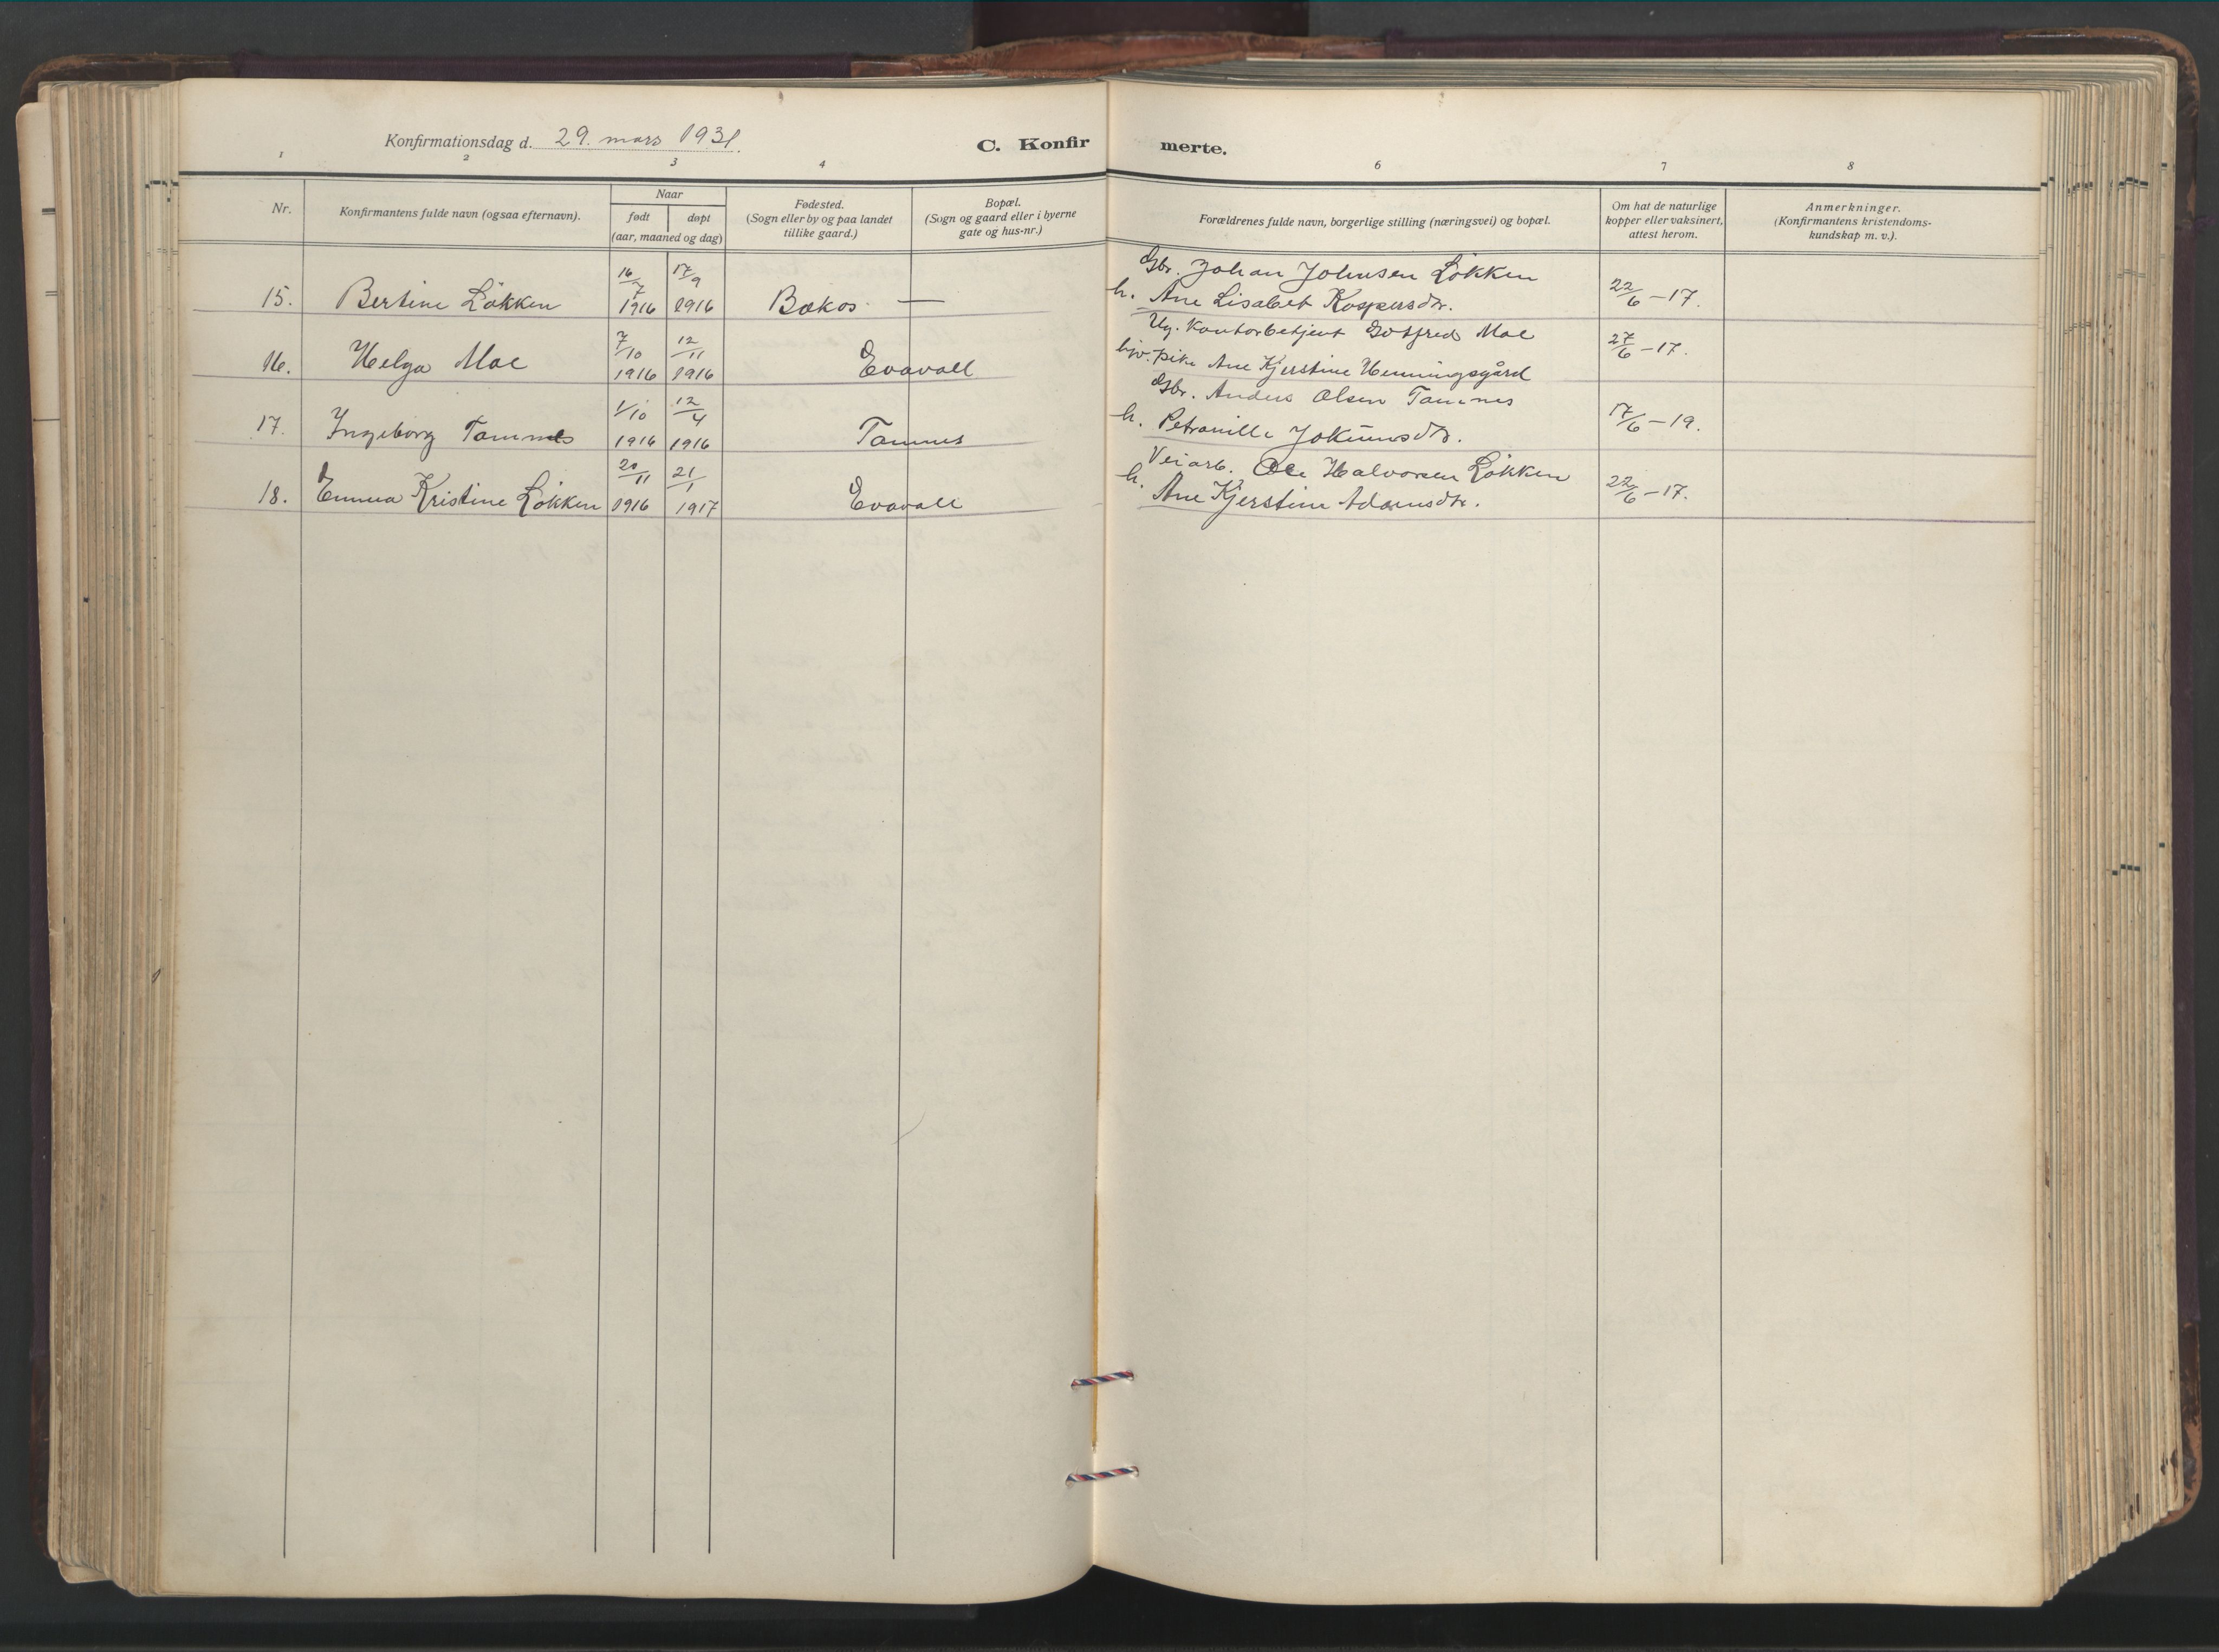 Konfirmationsdag d. 29. mars 1931.
C. Konfirmerte.
1 2 3 4 6 7 8
Nr.
Konfirmantens fulde navn (ogsaa efternavn).
Naar
født
døpt
(aar, maaned og dag)
Fødested.
(Sogn eller by og paa landet
tillike gaard.)
Bopæl.
(Sogn og gaard eller i byerne
gate og hus-nr.)
Forældrenes fulde navn, borgerlige stilling (næringsvei) og bopæl.
Om hat de naturlige
kopper eller vaksinert,
attest herom.
Anmerkninger.
(Konfirmantens kristendoms-
kundskap m. v.).
16/7 17/9 Gbr. Johan Johnsen Løkken
15. Bertine Løkken 1916 1916 Bakos — h. Ane Lisabet Kaspersdtr. 22/6 – 17.
7/10 12/11 Ug. Kontorbetjent Gotfred Moe
16. Helga Moe 1916 1916 Evavoll pike Ane Kjerstine Henningsgård 27/6 – 17.
1/10 12/4 Gbr. Anders Olsen Tamnes
17. Ingeborg Tamnes 1916 1916 Tamnes h. Petronille Jokumsdtr. 17/6 – 19.
20/11 21/1 Veiarb. Ole Halvorsen Løkken
18. Emma Kristine Løkken 1916 1917 Evavoll h. Ane Kjerstine Adamsdtr. 22/6 – 17.